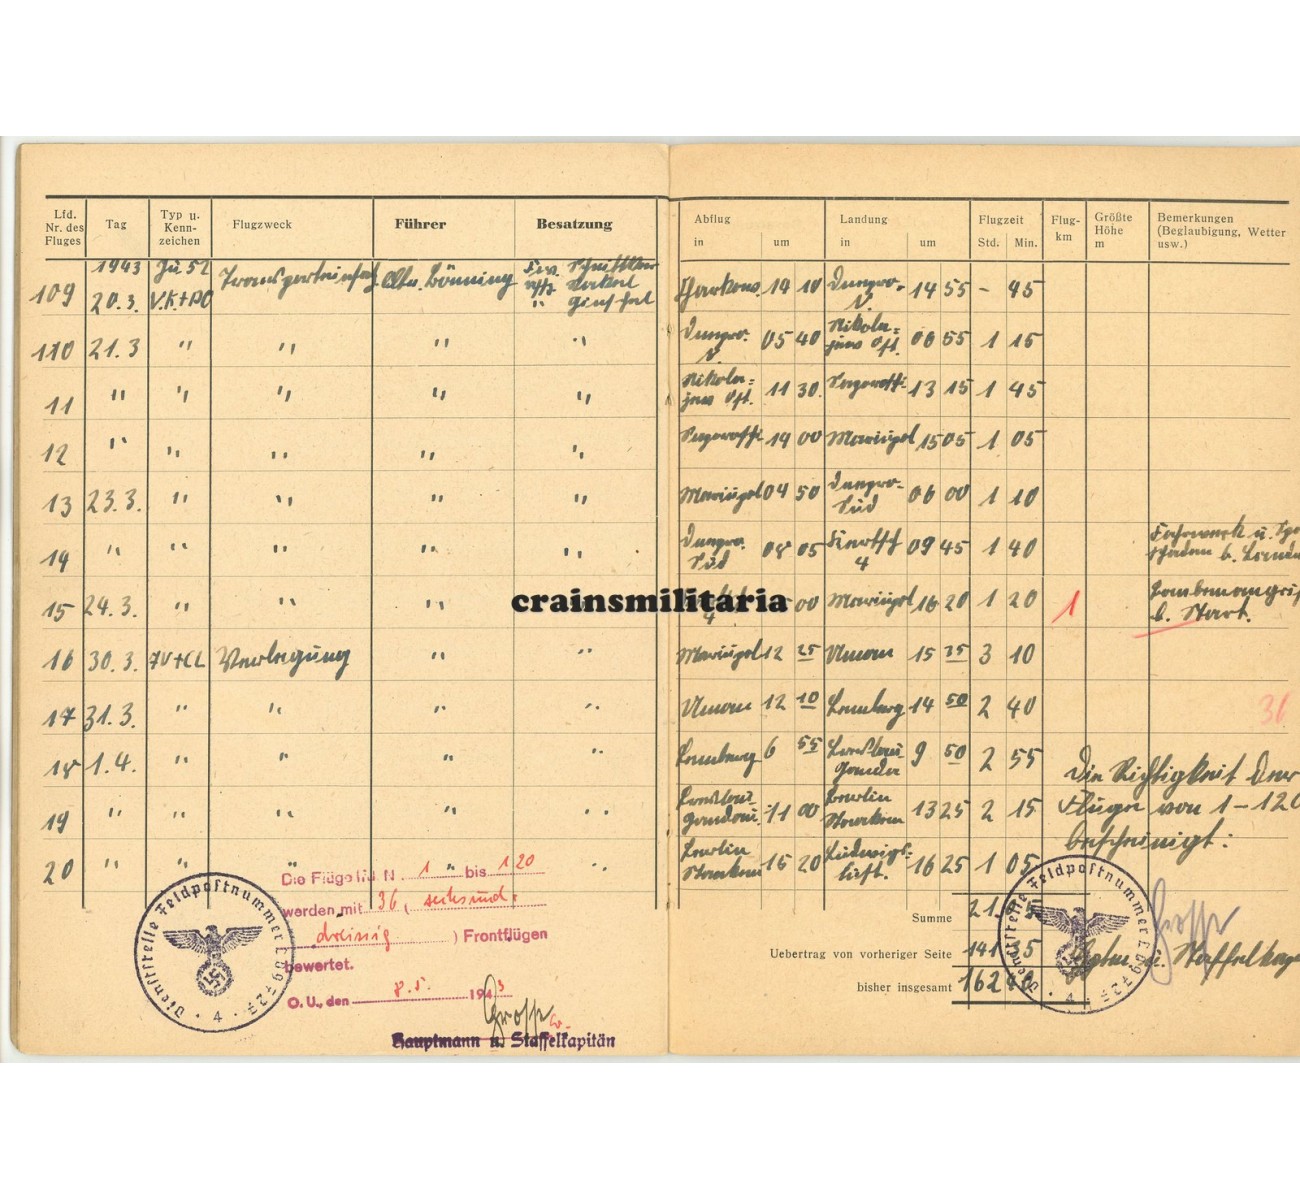 Lfd. Nr. des Fluges Tag Typ u. Kenn- zeichen Flugzweck Führer Besatzung Abflug in um Landung in um Flugzeit Std. Min. Flug- km Größte Höhe m Bemerkungen (Beglaubigung, Wetter usw.)
109 1943 20.3. Ju 52 Transporteinsatz 14 10 14 55 - 45
110 21.3 " " " " 05 40 06 55 1 15
11 " " " " " Nikola= jew Ost. 11 30 13 15 1 45
12 " " " " " 14 00 Mariupol 15 05 1 05
13 23.3. " " " " Mariupol 04 50 Dnepro- Süd 06 00 1 10
14 " " " " " Dnepro. Süd 08 05 Kertsch 4 09 45 1 40 Fahrwerk u.
15 24.3. " " " 4 00 Mariupol 16 20 1 20 1 Bombenangrif b. Start.
crainsmilitaria
16 30.3. Verlegung " " Mariupol 12 25 Uman 15 35 3 10
17 31.3. " " " " Uman 12 10 Lemberg 14 50 2 40 36
18 1.4. " " " " Lemberg 6 55 Breslau Gandau 9 50 2 55
19 " " " " " Breslau- Gandau. 11 00 Berlin Staaken 13 25 2 15
20 " " " " " Berlin Staaken 15 20 Ludwigs- lust. 16 25 1 05
Die Richtigkeit der
Flüge von 1-120
bescheinigt:
Die Flüge lfd. N. 1 bis 120
werden mit 36, sechsund-
dreissig ) Frontflügen
bewertet.
O. U., den 8.5. 1943
Hauptmann u. Staffelkapitän
Dienststelle Feldpostnummer L 09727
4
Summe 21
Uebertrag von vorheriger Seite 141 35
bisher insgesamt 162
Dienststelle Feldpostnummer L 09727
4
Hptm. u. Staffelkap